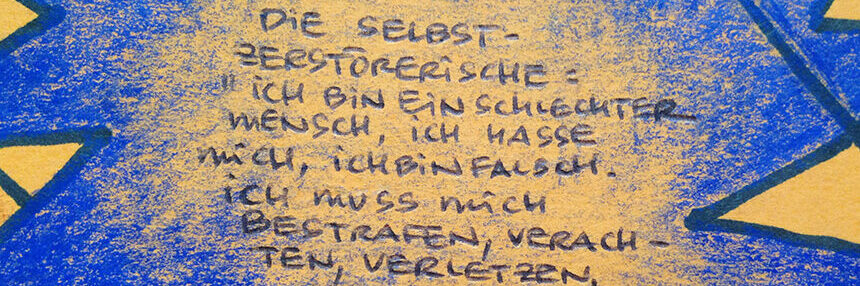 DIE SELBST-
ZERSTÖRERISCHE:
"ICH BIN EIN SCHLECHTER
MENSCH, ICH HASSE
MICH, ICH BIN FALSCH.
ICH MUSS MICH
BESTRAFEN, VERACH-
TEN, VERLETZEN.